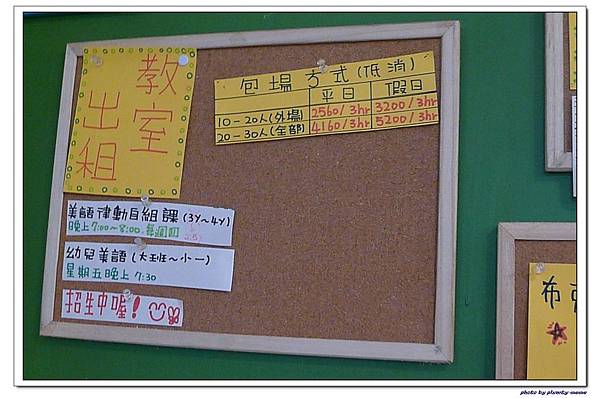 教室
出租
包場方式(低消)
平日 假日
10-20人(外場) 2560/3hr 3200/3hr
20-30人(全部) 4160/3hr 5200/3hr
美語律動自組課(3Y~4Y)
晚上7:00~8:00 每週四
幼兒美語(大班~小一)
星期五晚上7:30
招生中喔!
布
photo by planty-meme